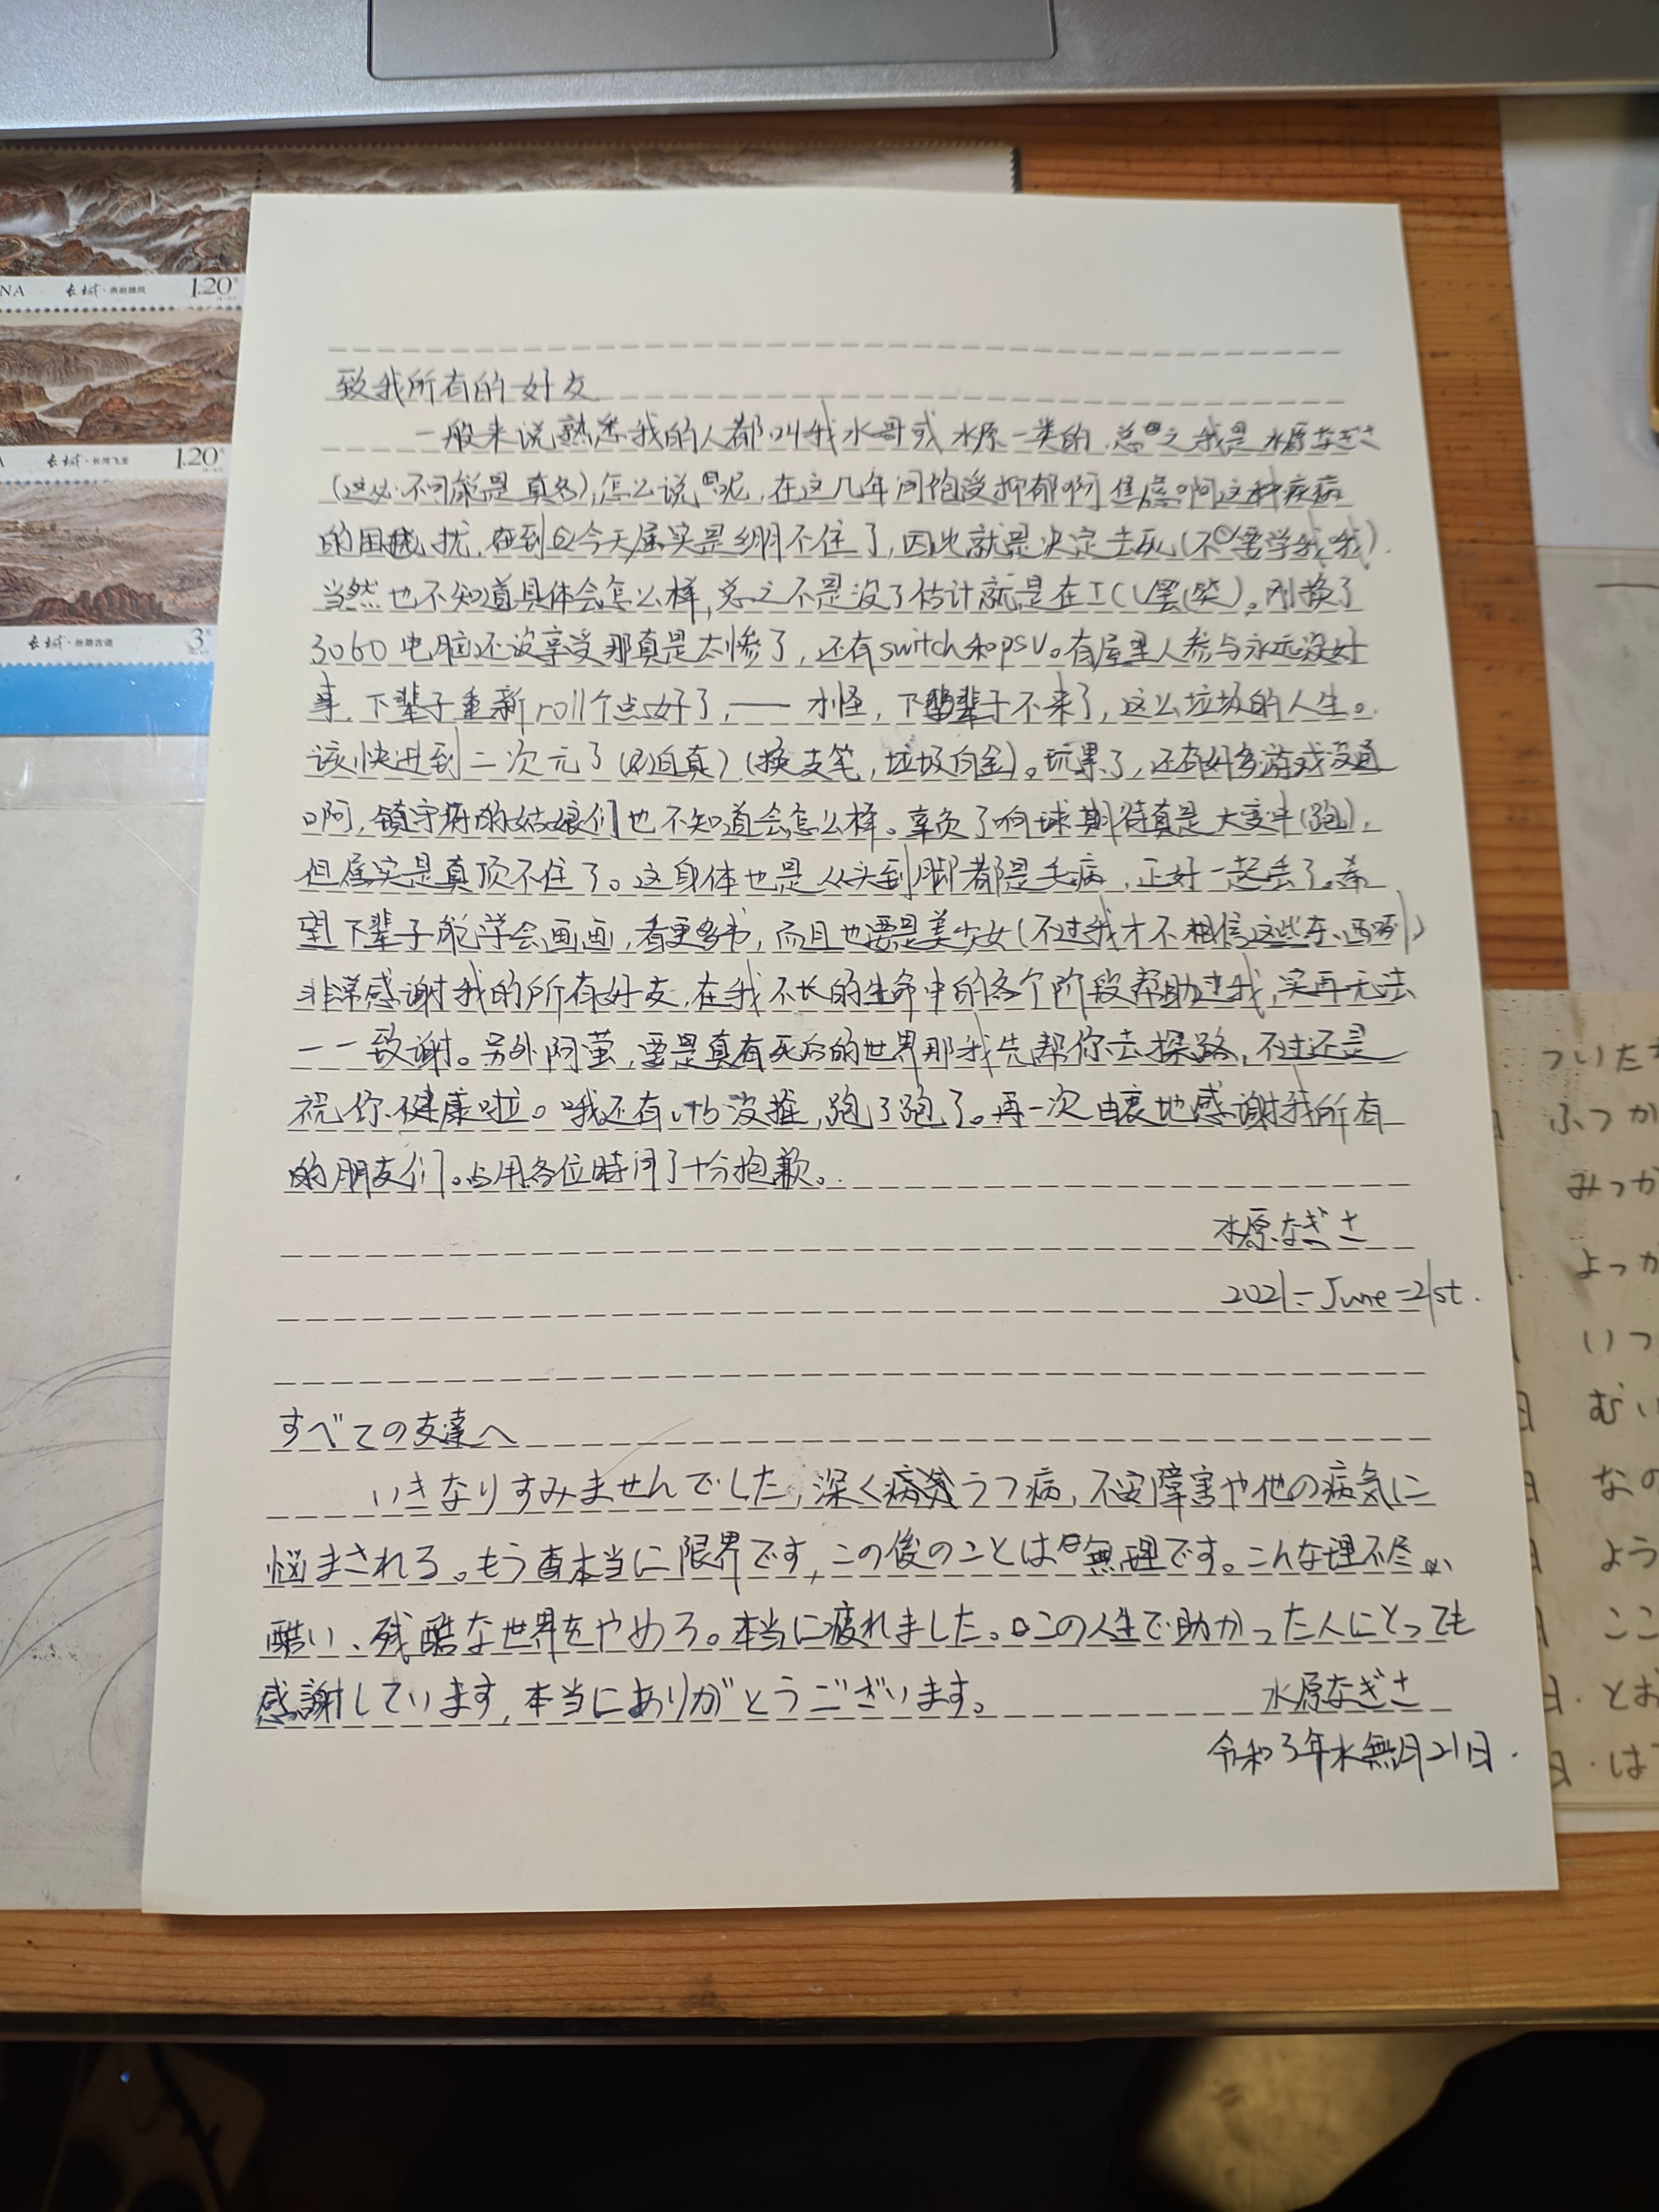 NA 长城·燕赵雄风 1.20
长城·长河飞龙 1.20
长城·丝路古道 3
致我所有的好友
一般来说熟悉我的人都叫我水哥或水原一类的.总之我是水原なぎさ
(这必不可能是真名),怎么说呢,在这几年间饱受抑郁啊焦虑啊这种疾病
的困扰,在到今天属实是绷不住了,因此就是决定去死(不要学我哦).
当然也不知道具体会怎么样,总之不是没了估计就是在ICU罢(笑)。刚换了
3060电脑还没享受那真是太惨了,还有switch和psv。有屋里人参与永远没好
事,下辈子重新roll个点好了,——水怪,下辈子不来了,这么垃圾的人生。
该快进到二次元了(迫真)(换支笔,垃圾白金)。玩累了,还有好多游戏没通
啊,镇守府的姑娘们也不知道会怎么样。辜负了啊球期待真是大变斗(跑),
但属实是真顶不住了。这身体也是从头到脚都是毛病,正好一起丢了。希
望下辈子能学会画画,看更多书,而且也要是美少女(不过我才不相信这些东西啊)
非常感谢我的所有好友,在我不长的生命中的各个阶段帮助过我,实再无法
一一致谢。另外阿萤,要是真有死后的世界那我先帮你去探路,不过还是
祝你健康啦。哦还有没推,跑了跑了。再一次由衷地感谢我所有
的朋友们。占用各位時间了十分抱歉。
水原なぎさ
2021-June-21st.
すべての友達へ
いきなりすみませんでした,深くうつ病,不安障害や他の病気に
悩まされる。もう本当に限界です,この後のことは無理です。こんな理不尽
酷い、残酷な世界をやめろ。本当に疲れました。この人生で助かった人にとっても
感謝しています,本当にありがとうございます。
水原なぎさ
令和3年水無月21日.
ついたち
ふつか
みっか
よっか
いつ
むい
なの
よう
ここ
とお
は